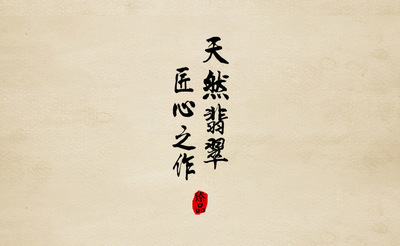 天然翡翠
匠心之作
臻品